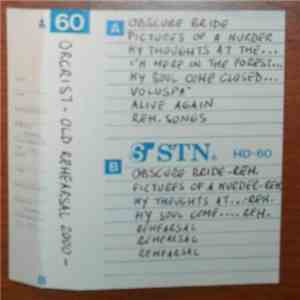 A
60
ORCRIST - OLD REHEARSAL 2000 -
B
A
OBSCURE BRIDE
PICTURES OF A MURDER
MY THOUGHTS AT THE...
I'M HERE IN THE FOREST...
MY SOUL COME CLOSED...
VOLUSPA'
ALIVE AGAIN
REH. SONGS
B
STN® HD-60
OBSCURE BRIDE-REH.
PICTURES OF A MURDER-REH.
MY THOUGHTS AT...-REH.
MY SOUL COME.... REH.
REHEARSAL
REHEARSAL
REHEARSAL